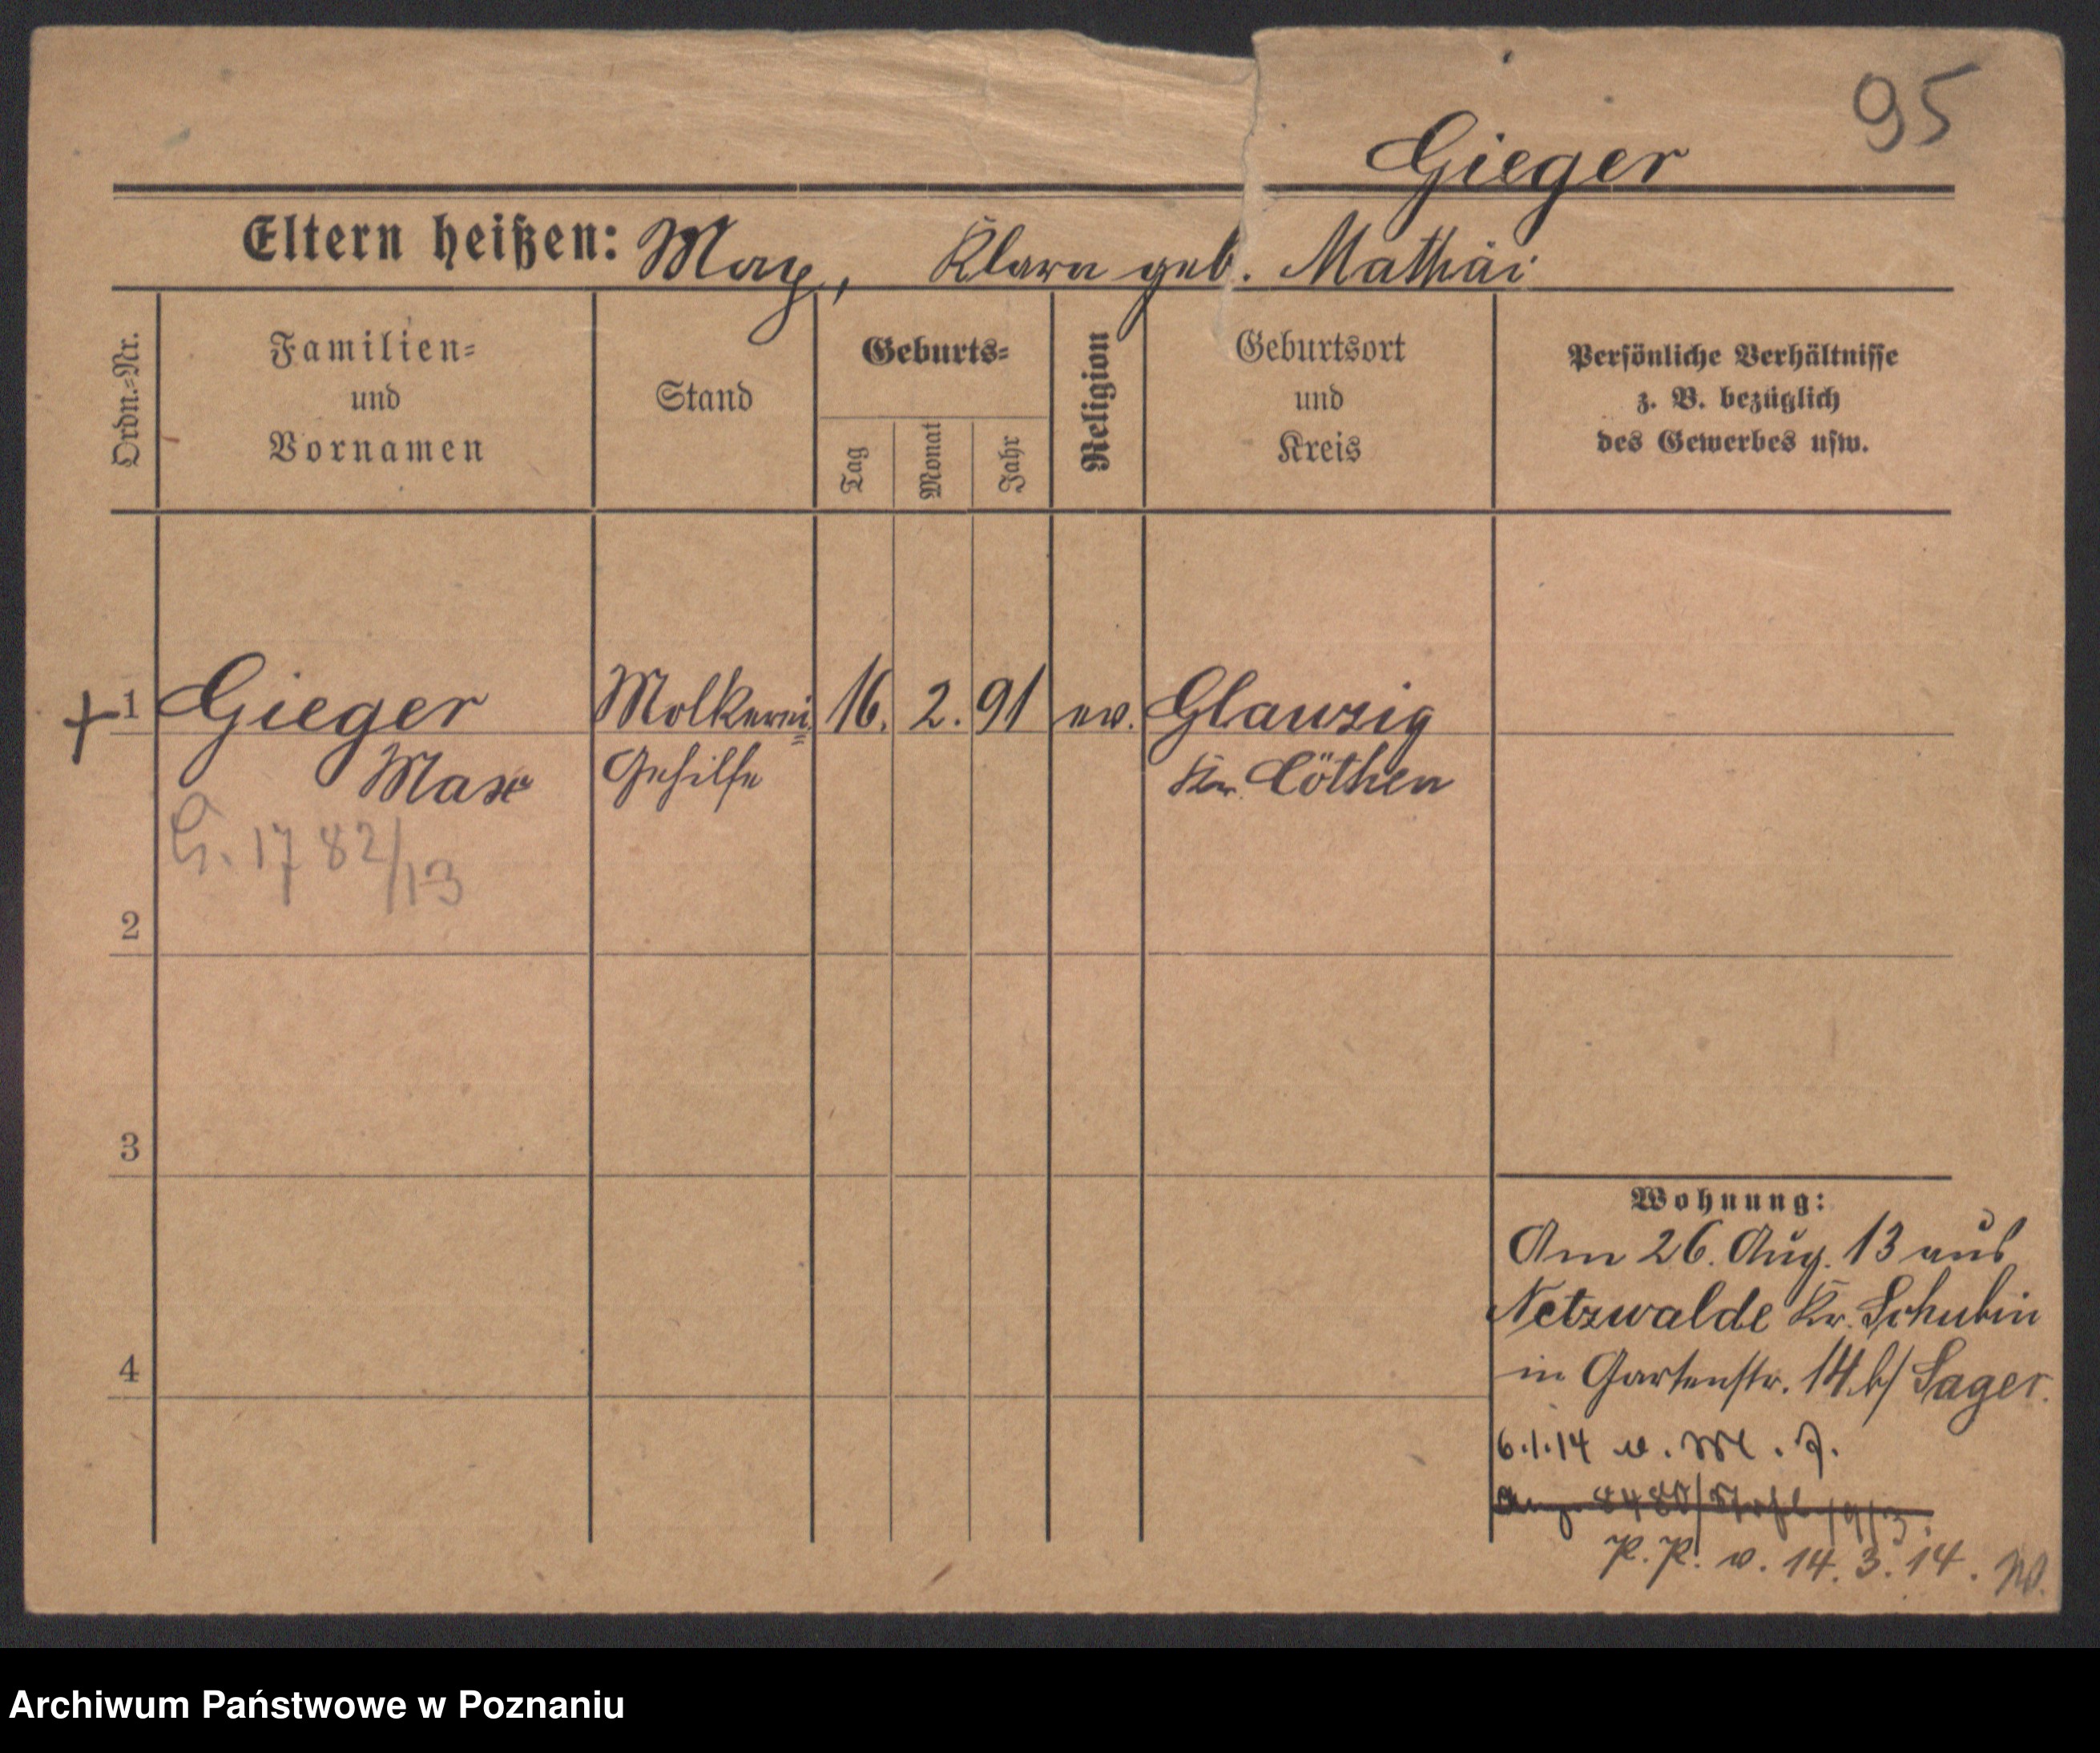 95
Gieger
Eltern heißen: Max, Klara geb. Mathäi
Ordn.-Nr.
Familien-
und
Vornamen
Stand
Geburts-
Tag
Monat
Jahr
Religion
Geburtsort
und
Kreis
Persönliche Verhältnisse
z. B. bezüglich
des Gewerbes usw.
+ 1 Gieger Molkerei- 16. 2. 91 ev. Glauzig
Max Gehilfe Kr. Cöthen
G. 1782/13
2
3
4
Wohnung:
Am 26. Aug. 13 aus
Netzwalde Kr. Schubin
in Gartenstr. 14 b/ Sager.
6.1.14
P. P. v. 14. 3. 14.
Archiwum Państwowe w Poznaniu